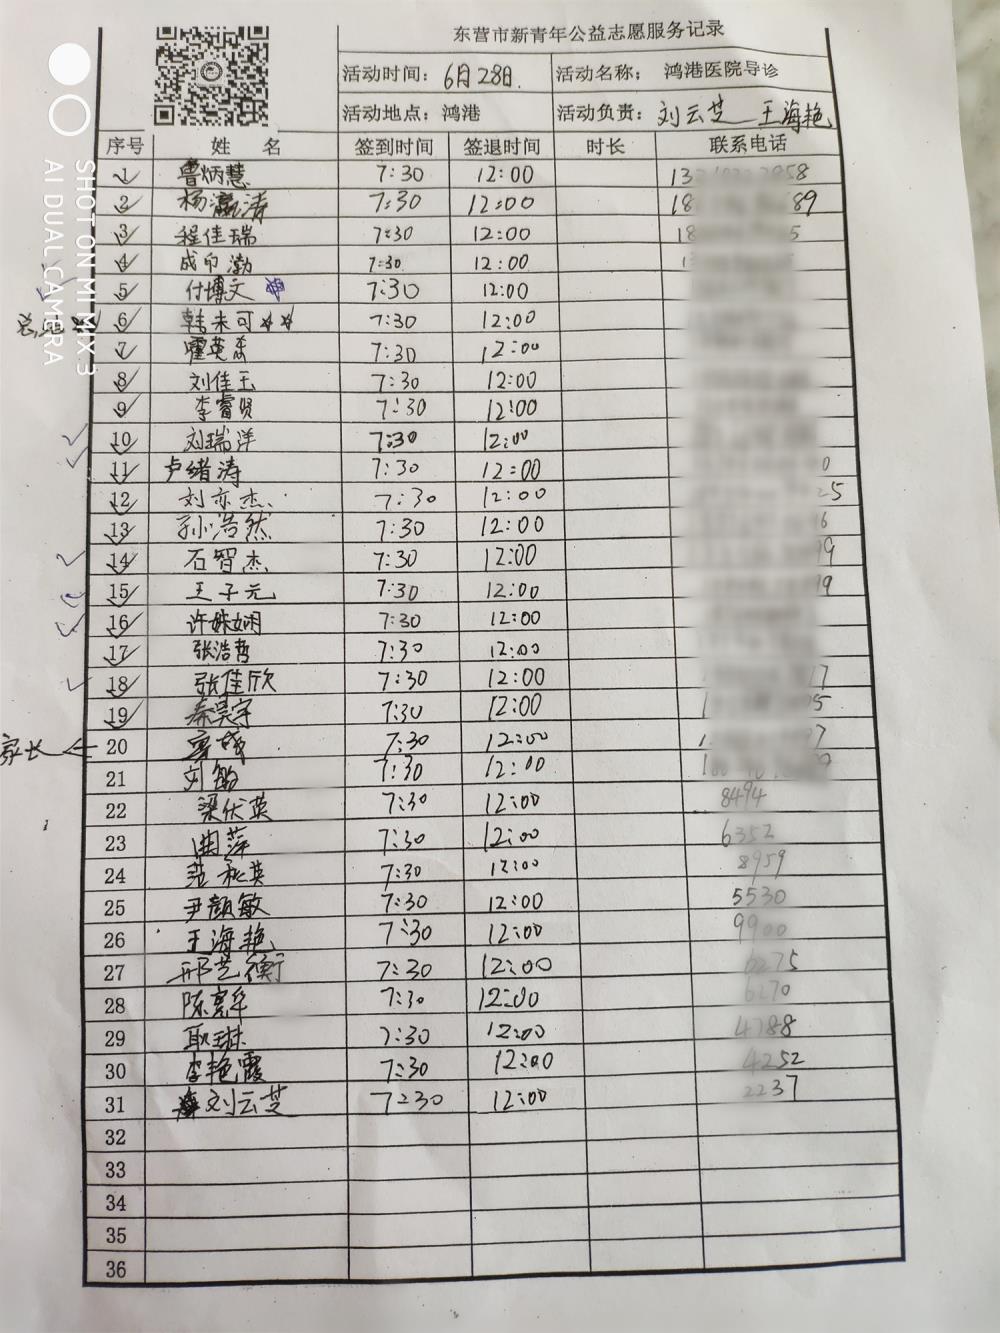 东营市新青年公益志愿服务记录
活动时间： 6月28日. 活动名称： 鸿港医院导诊
活动地点：鸿港 活动负责：刘云芝 王海艳
序号 姓 名 签到时间 签退时间 时长 联系电话
1 曾炳慧 7:30 12:00
2 杨瀛涛 7:30 12:00
3 程佳瑞 7:30 12:00
4 成印渤 7:30 12:00
5 付博文 7:30 12:00
6 韩未可 7:30 12:00
7 霍英 7:30 12:00
8 刘佳玉 7:30 12:00
9 李睿贤 7:30 12:00
10 刘瑞洋 7:30 12:00
11 卢绪涛 7:30 12:00
12 刘亦杰 7:30 12:00
13 孙浩然 7:30 12:00
14 石智杰 7:30 12:00
15 王子元 7:30 12:00
16 许姝娴 7:30 12:00
17 张浩哲 7:30 12:00
18 张佳欣 7:30 12:00
19 秦昊宇 7:30 12:00
家长 20 7:30 12:00
21 刘敏 7:30 12:00
22 梁伏英 7:30 12:00 8494
23 曲萍 7:30 12:00 6352
24 范秋英 7:30 12:00 8959
25 尹颜敏 7:30 12:00 5530
26 王海艳 7:30 12:00 9900
27 邢艺衡 7:30 12:00 6275
28 陈亮军 7:30 12:00 6270
29 耿琳 7:30 12:00 4788
30 李艳霞 7:30 12:00 4252
31 刘云芝 7:30 12:00 2237
32
33
34
35
36
SHOT ON MI MIX 3
AI DUAL CAMERA